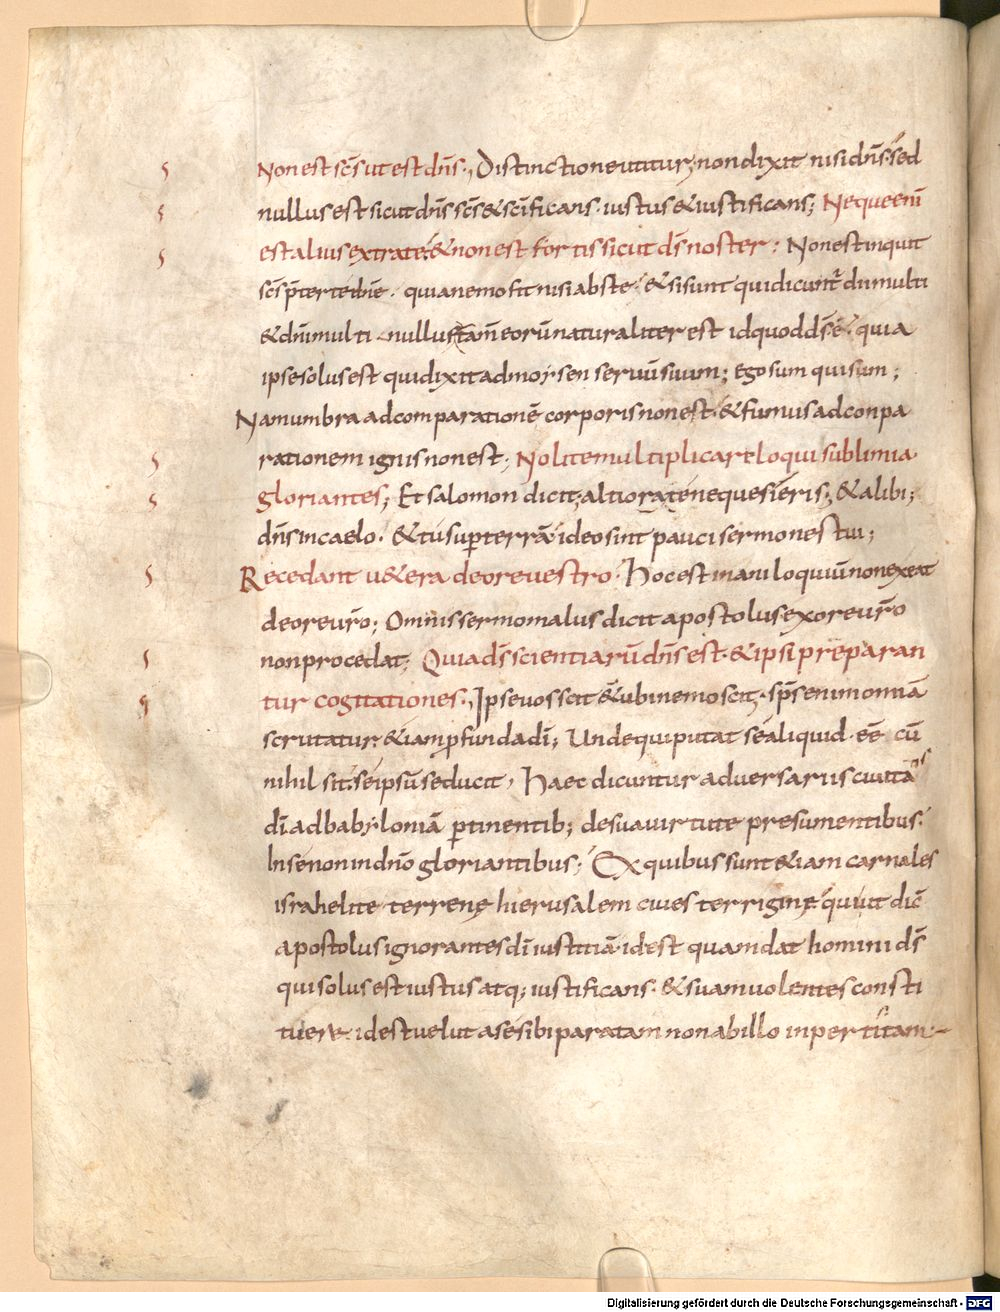 Non est sc̄s ut est dn̄s., Distinctione utitur; non dixit nisi dn̄s. sed
nullus est sicut dn̄s sc̄s & sc̄ificans. iustus & iustificans; Neque enī
est alius extra te. & non est fortis sicut ds̄ noster: Non est inquit
sc̄s p̄ter te dn̄e. quia nemo fit nisi abs te. & si sunt qui dicunt̄ dii multi
& dn̄i multi. nullus tam̄ eorū naturaliter est id quod ds̄ ē. quia
ipse solus est qui dixit ad moysen servū suum; Ego sum qui sum;
Nam umbra ad comparationē corporis non est. & fumus ad conpa
rationem ignis non est; Nolite multiplicare loqui sublimia
gloriantes; Et salomon dicit; altiora te ne quesieris; & alibi;
dn̄s in caelo. & tu sup terrā. ideo sint pauci sermones tui;
Recedant u&era de ore vestro. Hoc est maniloquiū non exeat
de ore ur̄o; Omnis sermo malus dicit apostolus ex ore ur̄o
non procedat; Quia ds̄ scientiarū dn̄s est. & ipsi preparan
tur cogitationes., Ipse vos scit & ubi nemo scit. sp̄s enim omniā
scrutatur. & iam pfunda dī; Unde qui putat se aliquid eē cū
nihil sit. se ipsū seducit, Haec dicuntur adversariis civitatis
dī ad babyloniā ptinentib; de sua virtute presumentibus.
In se non in dn̄o gloriantibus; Ex quibus sunt &iam carnales
israhelite terrenę hierusalem cives terriginę qui ut dic̄
apostolus ignorantes dī iustitiā. id est quam dat homini ds̄
qui solus est iustus atq; iustificans. & suam volentes consti
tuere. id est velut a se sibi paratam non ab illo inpertitam.
Digitalisierung gefördert durch die Deutsche Forschungsgemeinschaft - DFG